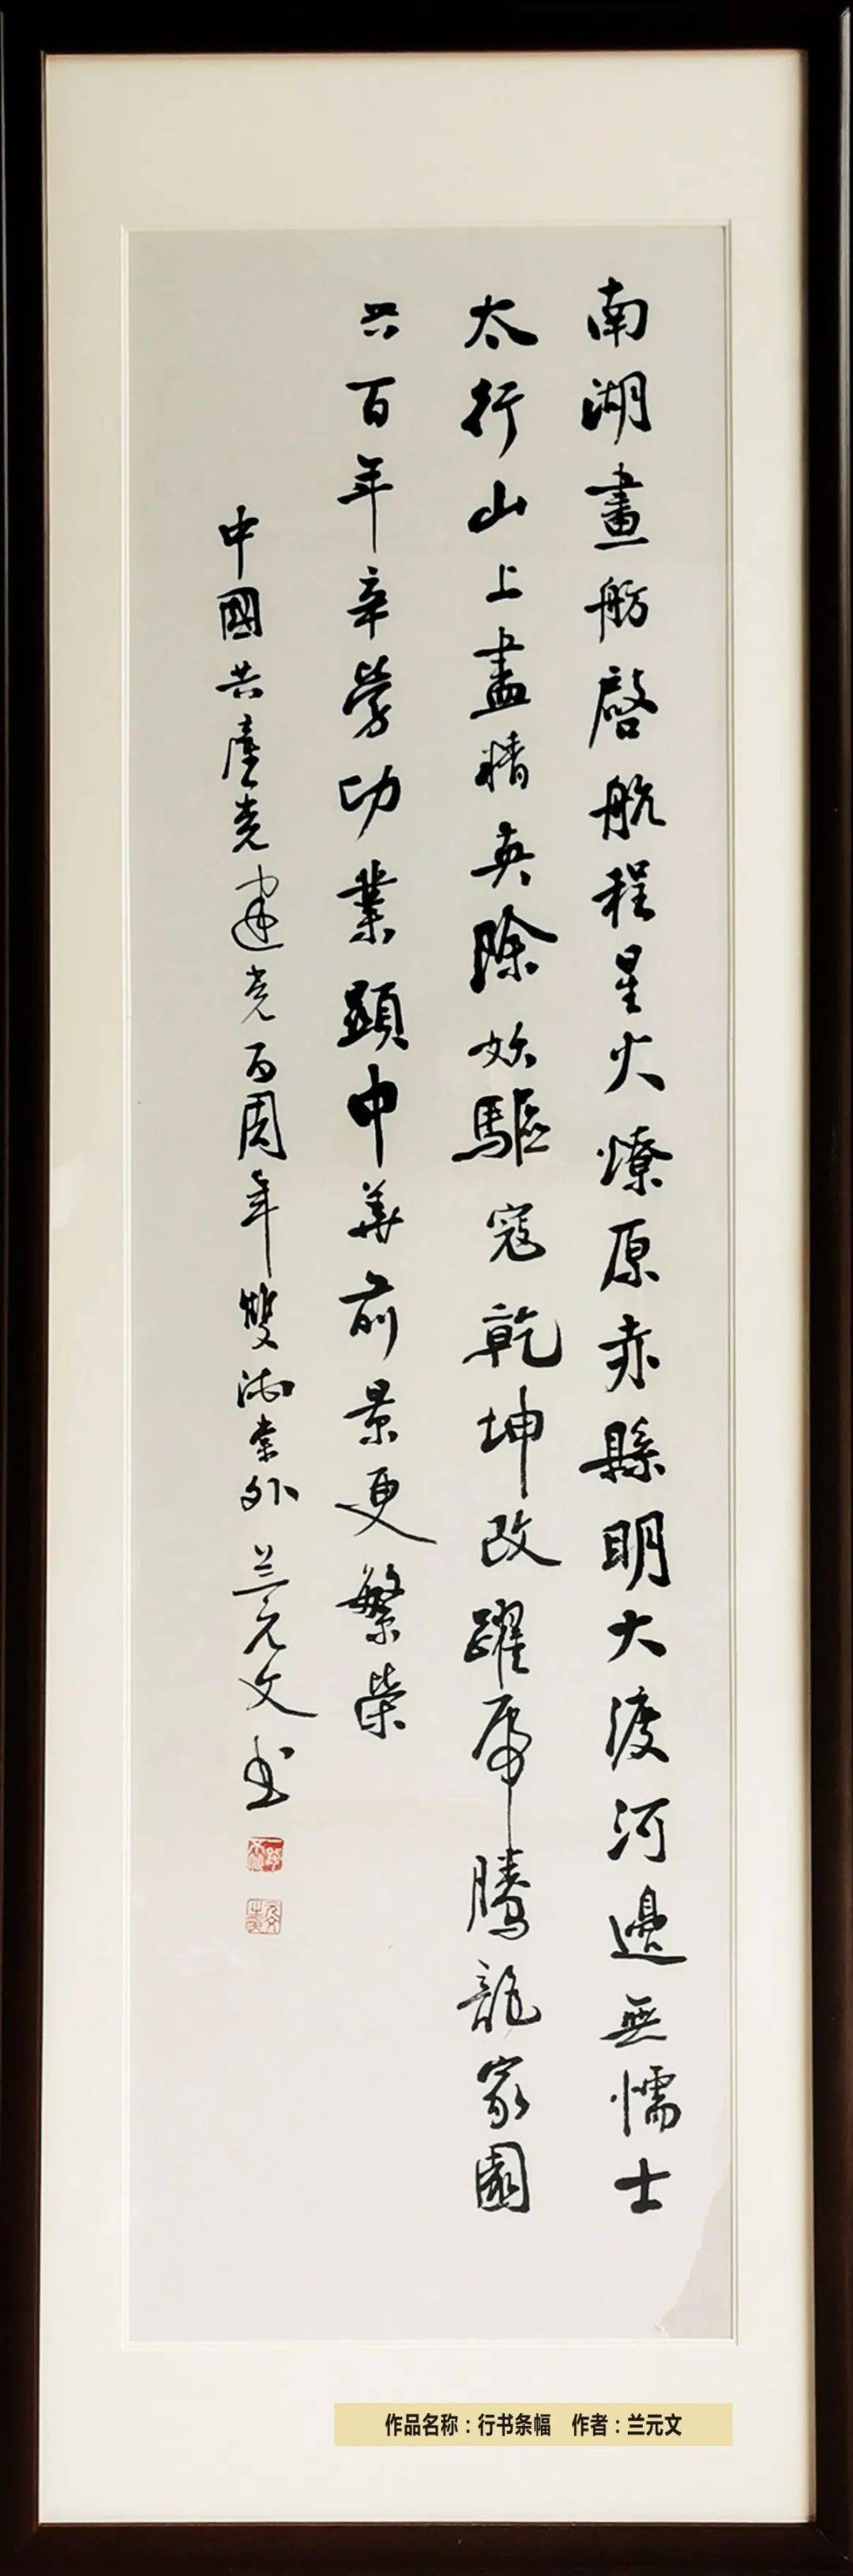 南湖畫舫啓航程星火燎原赤縣明大渡河邊無懦士
太行山上盡精英除妖驅寇乾坤改躍虎騰龍家園
興百年辛勞功業顯中華前景更繁榮
中國共產党建党百周年雙 外兰元文书
作品名称：行书条幅 作者：兰元文